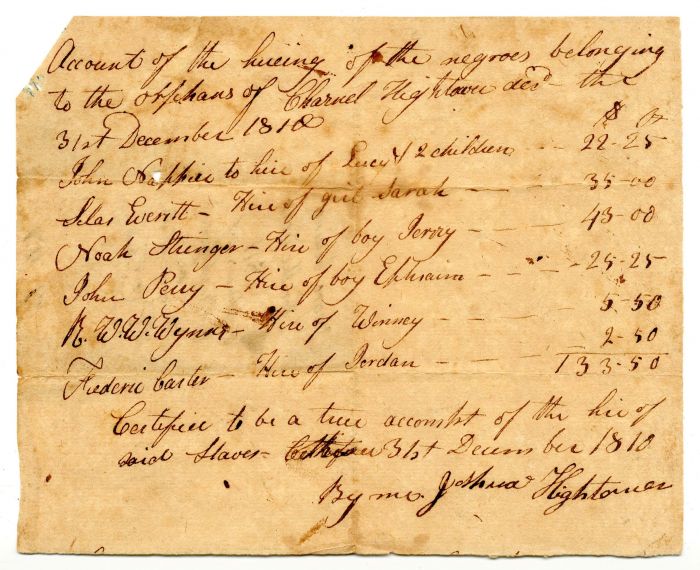 Account of the hireing of the negroes belonging
to the orphans of Charnel Hightower decd the
31st December 1810
$ Cts
John Nappier to hire of Lucy & 2 children - - 22-25
Silas Everitt - Hire of girl Sarah - - - 35-00
Noah Stringer - Hire of boy Jerry - - - 43-00
John Perry - Hire of boy Ephraim - - - 25-25
R. W. W. Wynne - Hire of Winney - - - 5-50
Frederic Carter - Hire of Jordan - - - 2-50
133-50
Certifies to be a true accompt of the hire of
said slaves - 31st December 1810
By me Joshua Hightower